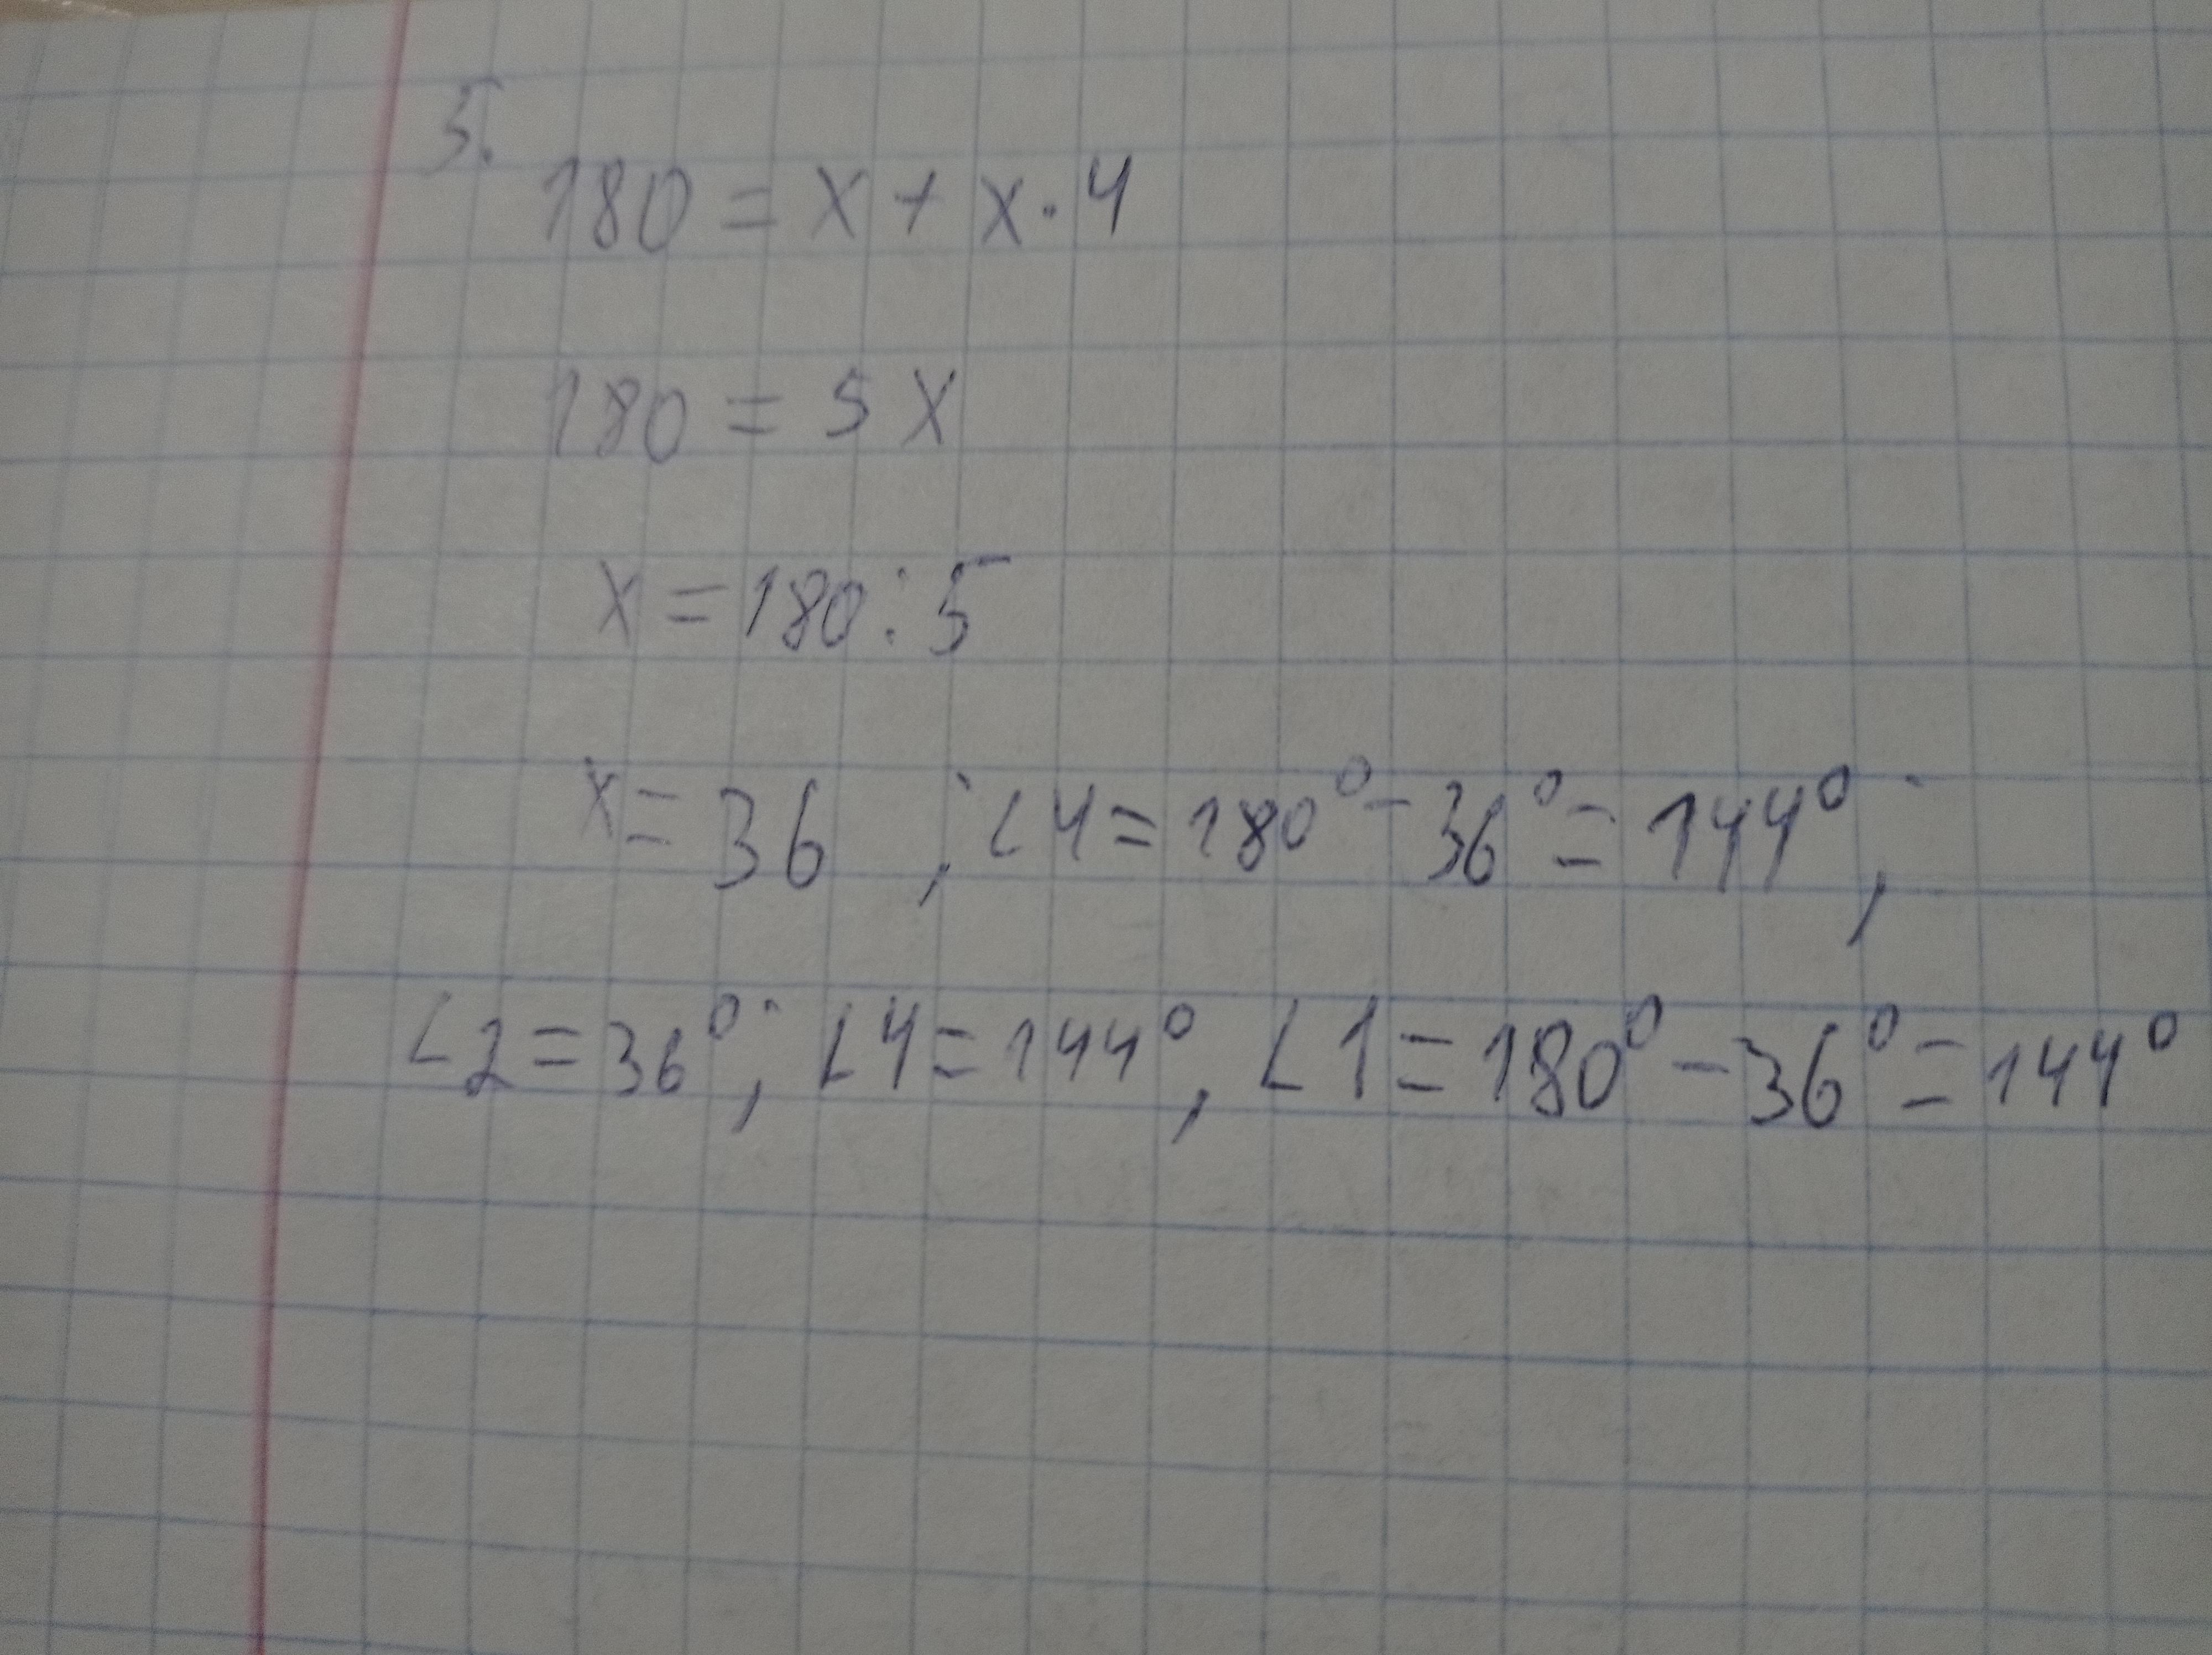 5.
180 = x + x · 4
180 = 5 x
x = 180 : 5
x = 36 ; ∠4 = 180° - 36° = 144° ;
∠2 = 36° ; ∠4 = 144° , ∠1 = 180° - 36° = 144°